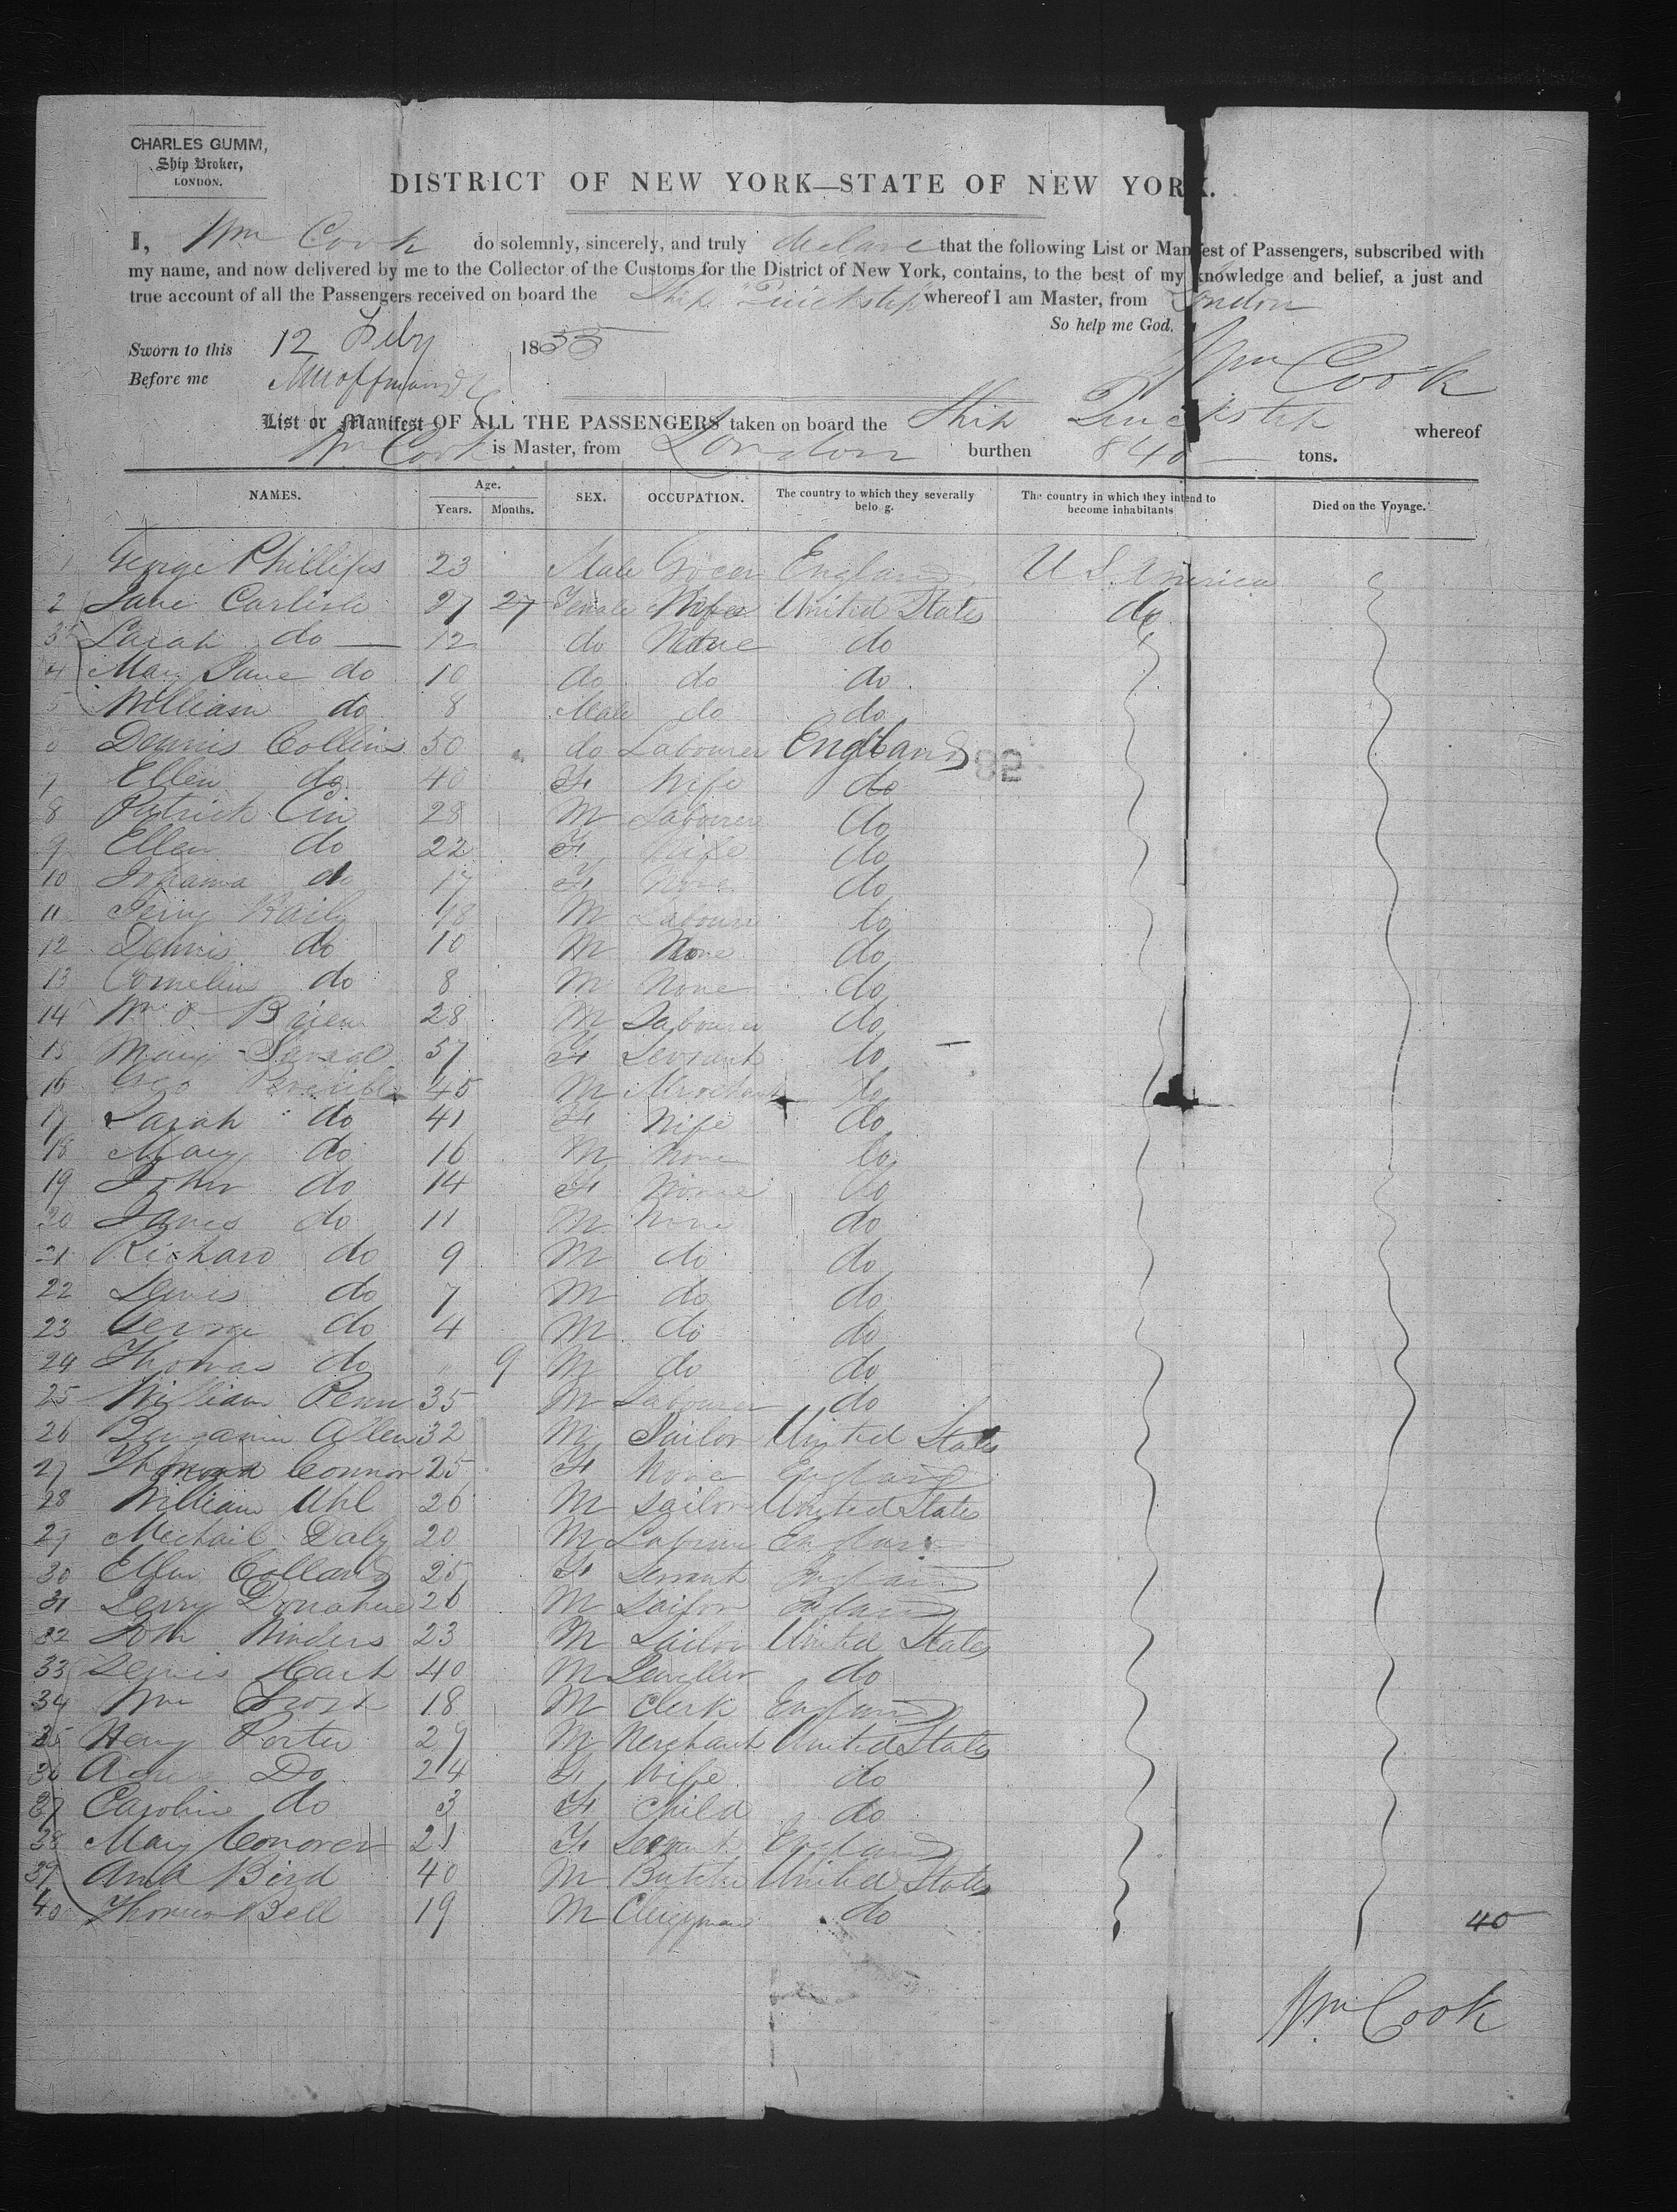 CHARLES GUMM,
Ship Broker,
LONDON.
DISTRICT OF NEW YORK—STATE OF NEW YORK.
I, Wm Cook do solemnly, sincerely, and truly declare that the following List or Manifest of Passengers, subscribed with
my name, and now delivered by me to the Collector of the Customs for the District of New York, contains, to the best of my knowledge and belief, a just and
true account of all the Passengers received on board the Ship "Quickstep" whereof I am Master, from London
So help me God.
Sworn to this 12 Feby 1855
Wm Cook
Before me
List or Manifest OF ALL THE PASSENGERS taken on board the Ship Quickstep whereof
Wm Cook is Master, from London burthen 840 tons.
NAMES. Age. Years. Months. SEX. OCCUPATION. The country to which they severally belo g. The country in which they intend to become inhabitants Died on the Voyage.
1 George Phillips 23 Male Grocer England U S America
2 Jane Carlisle 27 27 Female Wife United States do
3 Sarah do 12 do None do
4 Mary Jane do 10 do do do
5 William do 8 Male do do
6 Dennis Collins 50 do Labourer England
82
7 Ellen do 40 F Wife do
8 Patrick 28 M Labourer do
9 Ellen do 22 F Wife do
10 Johanna do 17 F None do
11 Labourer do
12 Dennis do 10 M None do
13 Cornelius do 8 M None do
14 Wm O Brien 28 M Labourer do
15 Mary Savage 57 F Servant do
16 Geo 45 M Merchant do
17 Sarah do 41 F Wife do
18 Mary do 16 M None do
19 John do 14 F None do
20 James do 11 M None do
21 Richard do 9 M do do
22 Lewis do 7 M do do
23 George do 4 M do do
24 Thomas do 9 M do do
25 William Penn 35 M Labourer do
26 Benjamin Allen 32 M Sailor United States
27 Connor 25 F None England
28 William Uhl 26 M Sailor United States
29 Mechail Daly 20 M Labourer England
30 Ellen Collard 25 F Servant England
31 Jerry Donahue 26 M Sailor England
32 John Winders 23 M Sailor United States
33 Lewis Hart 40 M Jeweller do
34 Wm 18 M Clerk England
35 Henry Porter 29 M Merchant United States
36 Agnes Do 24 F Wife do
37 Caroline do 3 F Child do
38 Mary Conover 21 F Servant England
39 Bird 40 M Butcher United States
40 Thomas Bell 19 M Clergyman do
40
Wm Cook